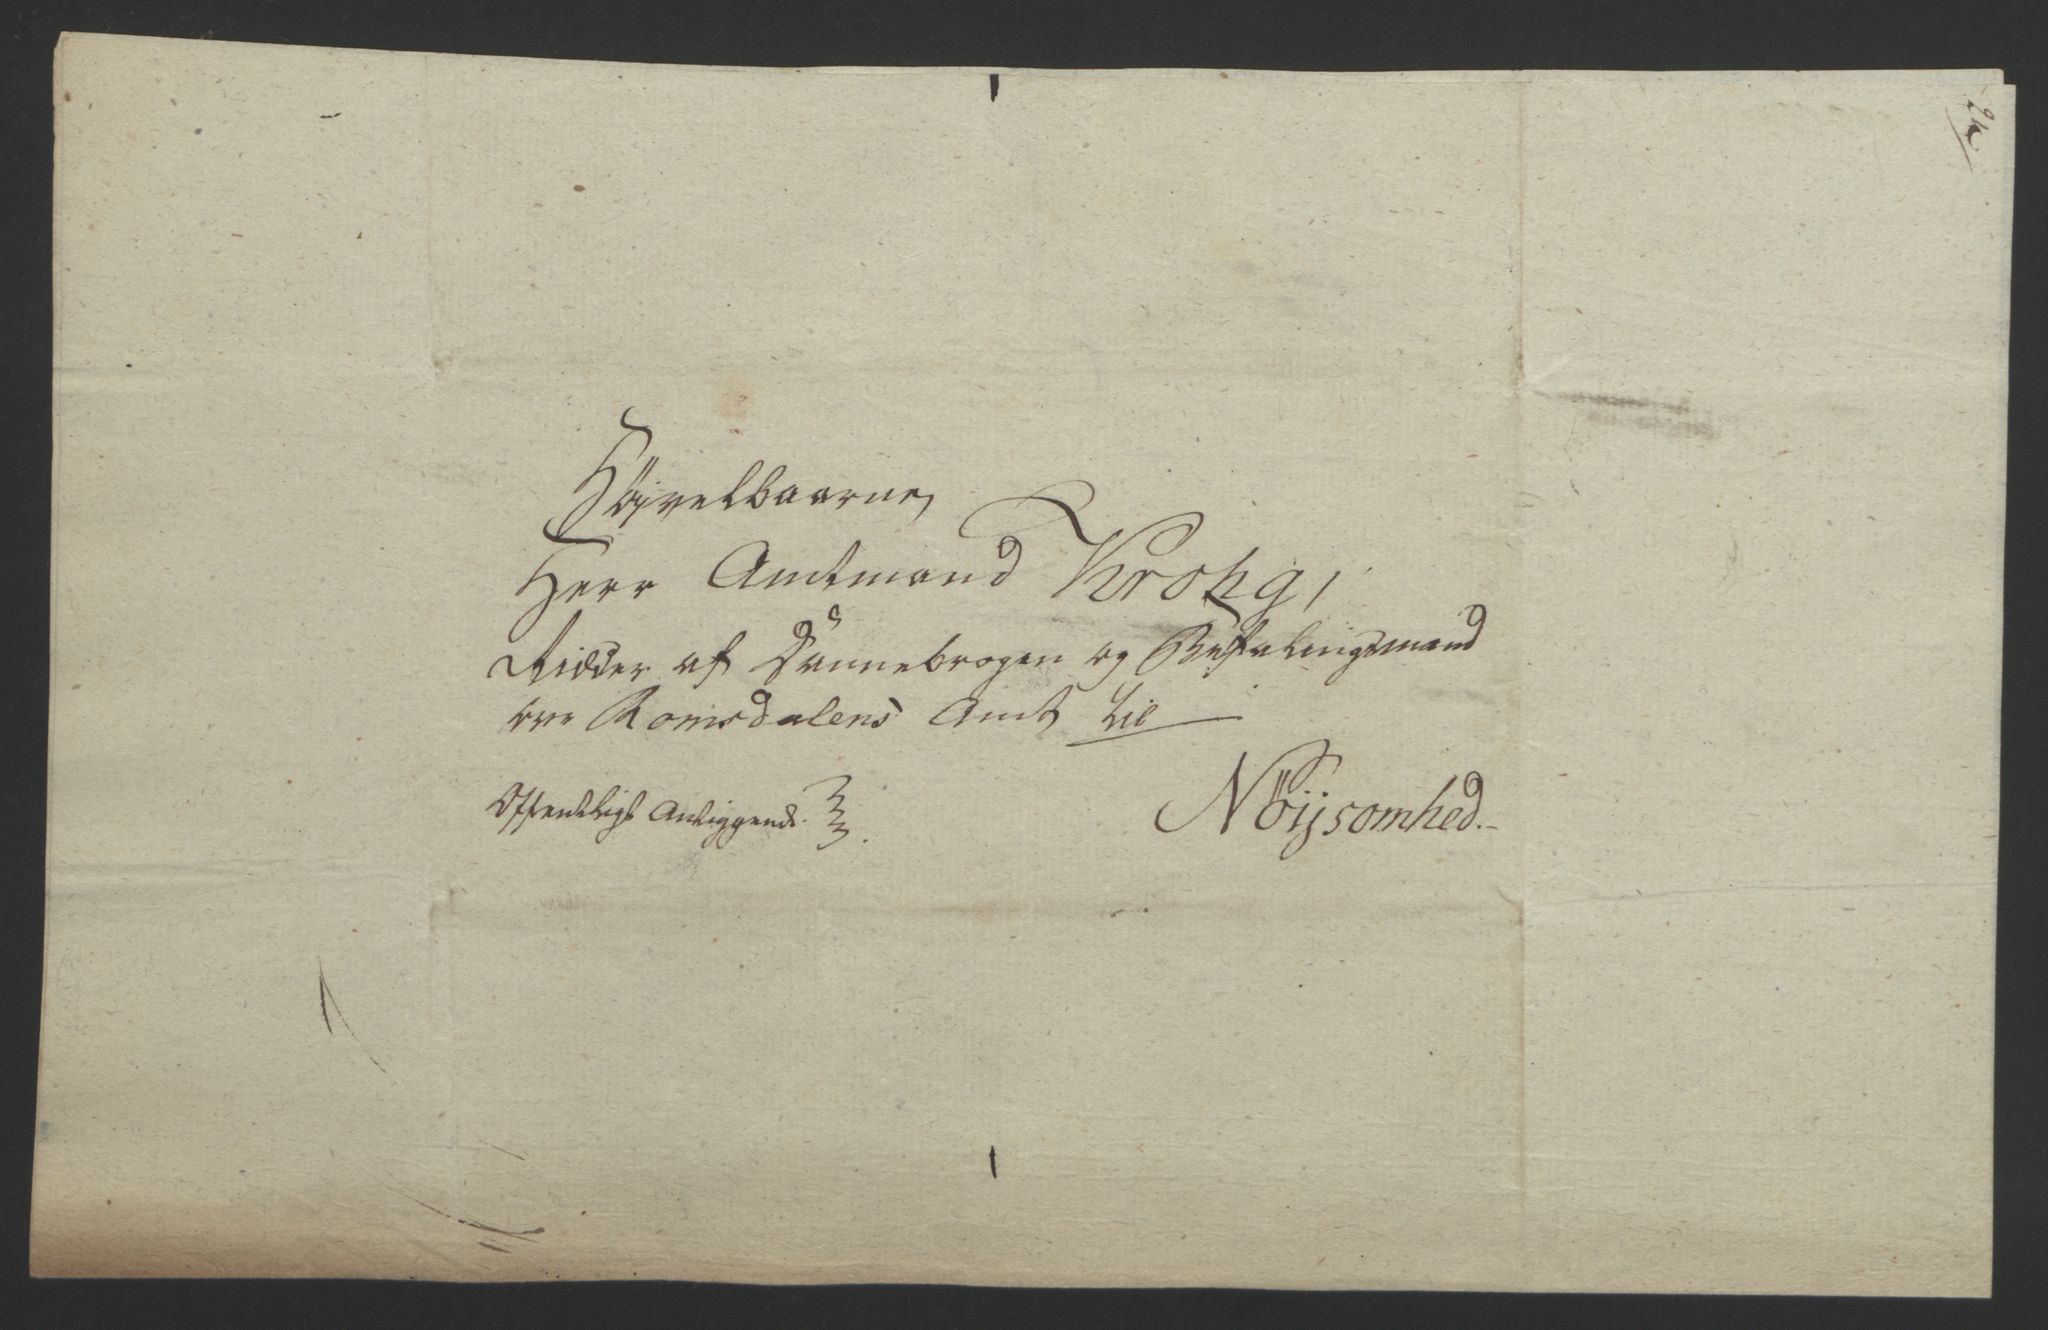 Høivelbaarne
Herr Amtmand Krohg,
Ridder af Dannebrogen og Befalingsmand
over Romsdalens Amt til
Nöijsomhed.-
Offentligt Anliggende.